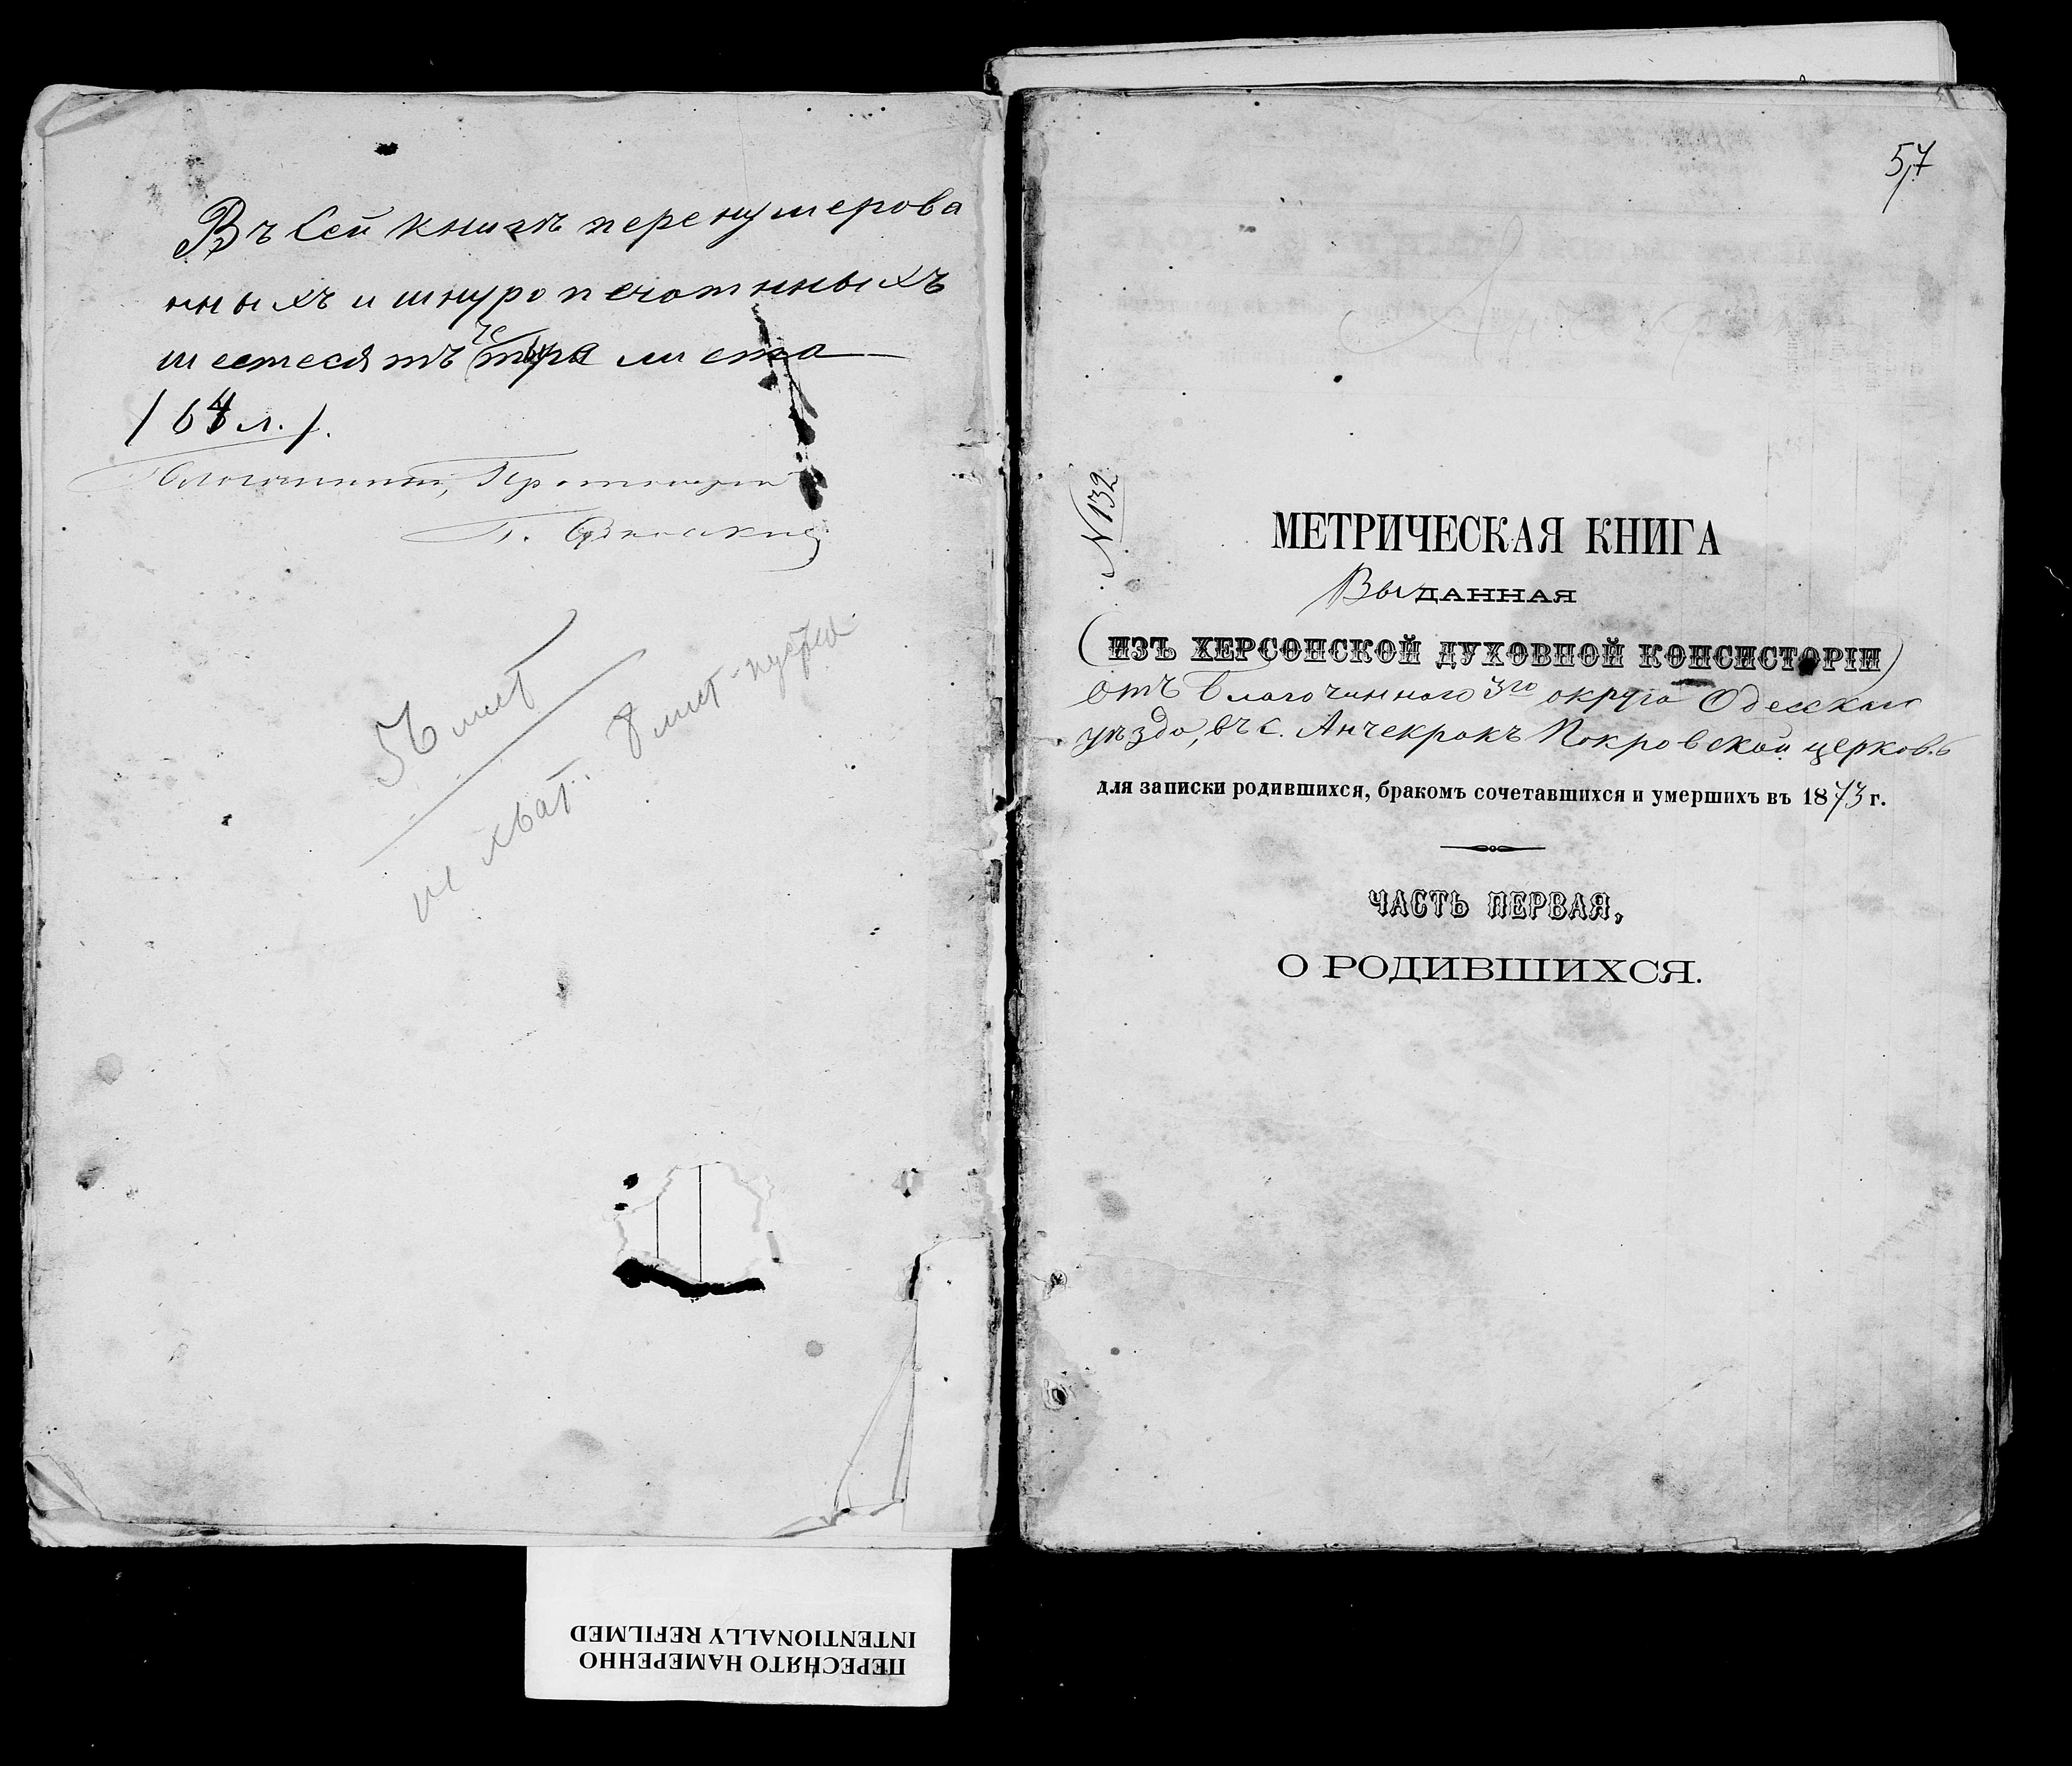 Въ сей книгѣ перенумерова
нныхъ и шнуропечатнныхъ
шестесятъ четыра листа
/ 64 л. /.
Благочинный, Протоиерей
Г.
56 лист
не хват. 8 лист - пустых
57
№ 132
МЕТРИЧЕСКАЯ КНИГА
Выданная
(ИЗЪ ХЕРСОНСКОЙ ДУХОВНОЙ КОНСИСТОРІИ)
отъ Благочиннаго 3го округа Одесскаго
уѣзда, въ с. Анчекракъ Покровской церковь
для записки родившихся, бракомъ сочетавшихся и умершихъ въ 1873 г.
ЧАСТЬ ПЕРВАЯ,
О РОДИВШИХСЯ.
ПЕРЕСНЯТО НАМЕРЕННО
INTENTIONALLY REFILMED